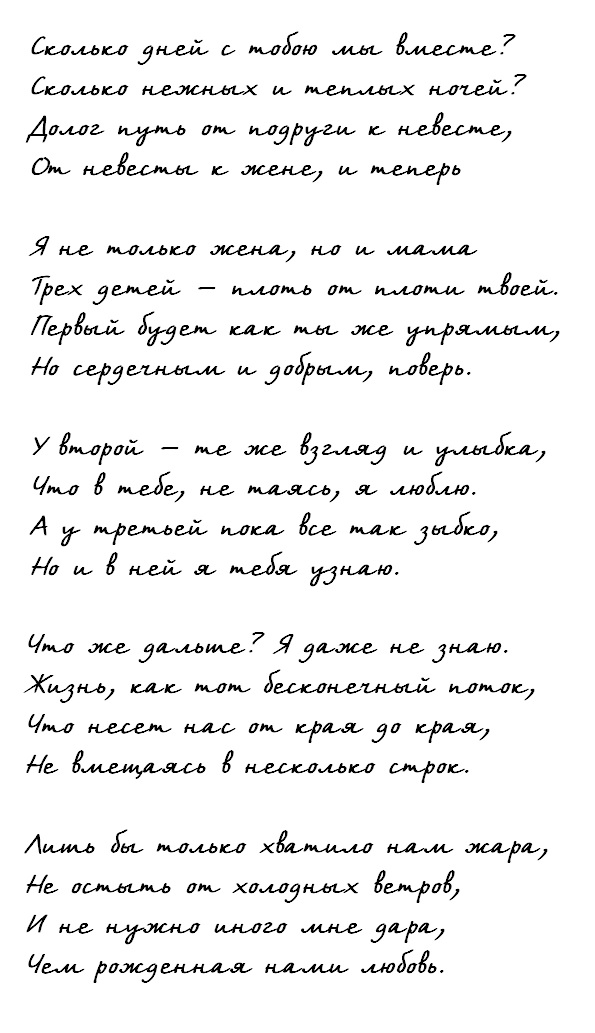 Сколько дней с тобою мы вместе?
Сколько нежных и теплых ночей?
Долог путь от подруги к невесте,
От невесты к жене, и теперь
Я не только жена, но и мама
Трех детей – плоть от плоти твоей.
Первый будет как ты же упрямым,
Но сердечным и добрым, поверь.
У второй – те же взгляд и улыбка,
Что в тебе, не таясь, я люблю.
А у третьей пока все так зыбко,
Но и в ней я тебя узнаю.
Что же дальше? Я даже не знаю.
Жизнь, как тот бесконечный поток,
Что несет нас от края до края,
Не вмещаясь в несколько строк.
Лишь бы только хватило нам жара,
Не остыть от холодных ветров,
И не нужно иного мне дара,
Чем рожденная нами любовь.